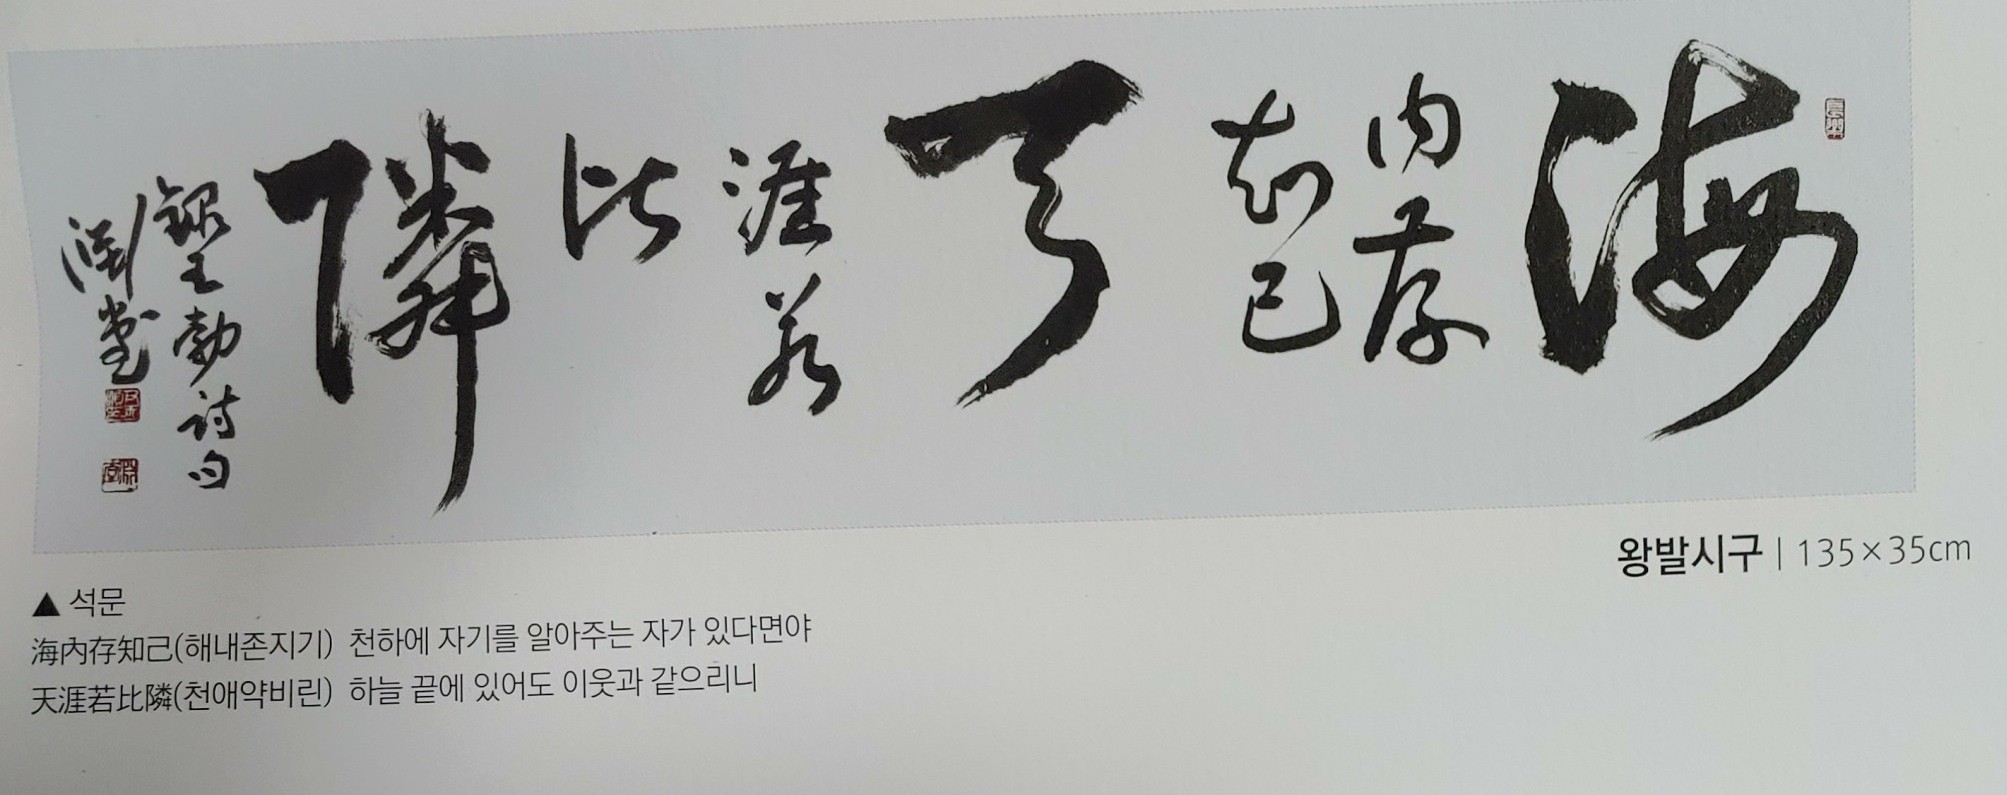 海
內存
知己
天
涯若
比
隣
錄王勃詩句
淵堂
왕발시구 | 135×35cm
▲ 석문
海內存知己(해내존지기) 천하에 자기를 알아주는 자가 있다면야
天涯若比隣(천애약비린) 하늘 끝에 있어도 이웃과 같으리니